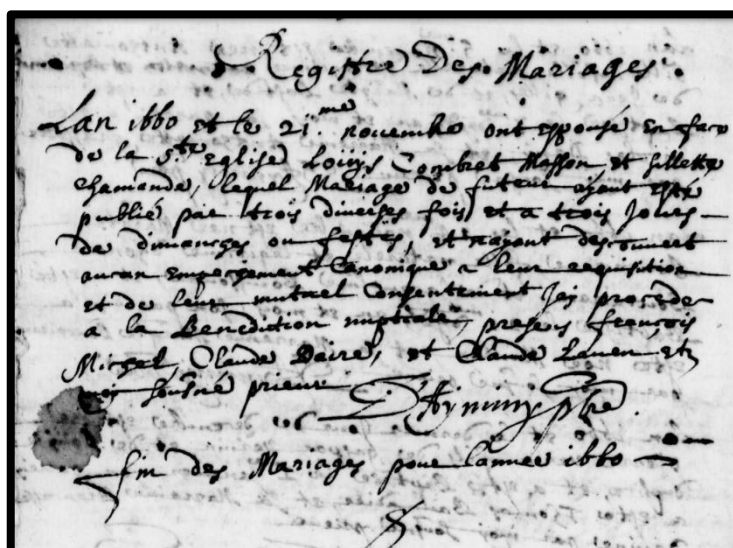 Registre Des Mariages.
Lan 1660 et le 21.me novembre ont espousé en face
de la Ste Eglise Louys Combret Masson et Gillette
chamande, lequel Mariage de futeur ayant esté
publié par trois diverses fois, et a trois Jours
de dimanches ou festes, et n'ayant descouvert
aucun empeschement Canonique a leur requisition
et de leur mutuel Consentement Jay procede
a la Benediction nuptiale, presens françois
Michel, Claude Daire, et Claude et
moy soubsné prieur
ptre
fin des Mariages pour Lannee 1660